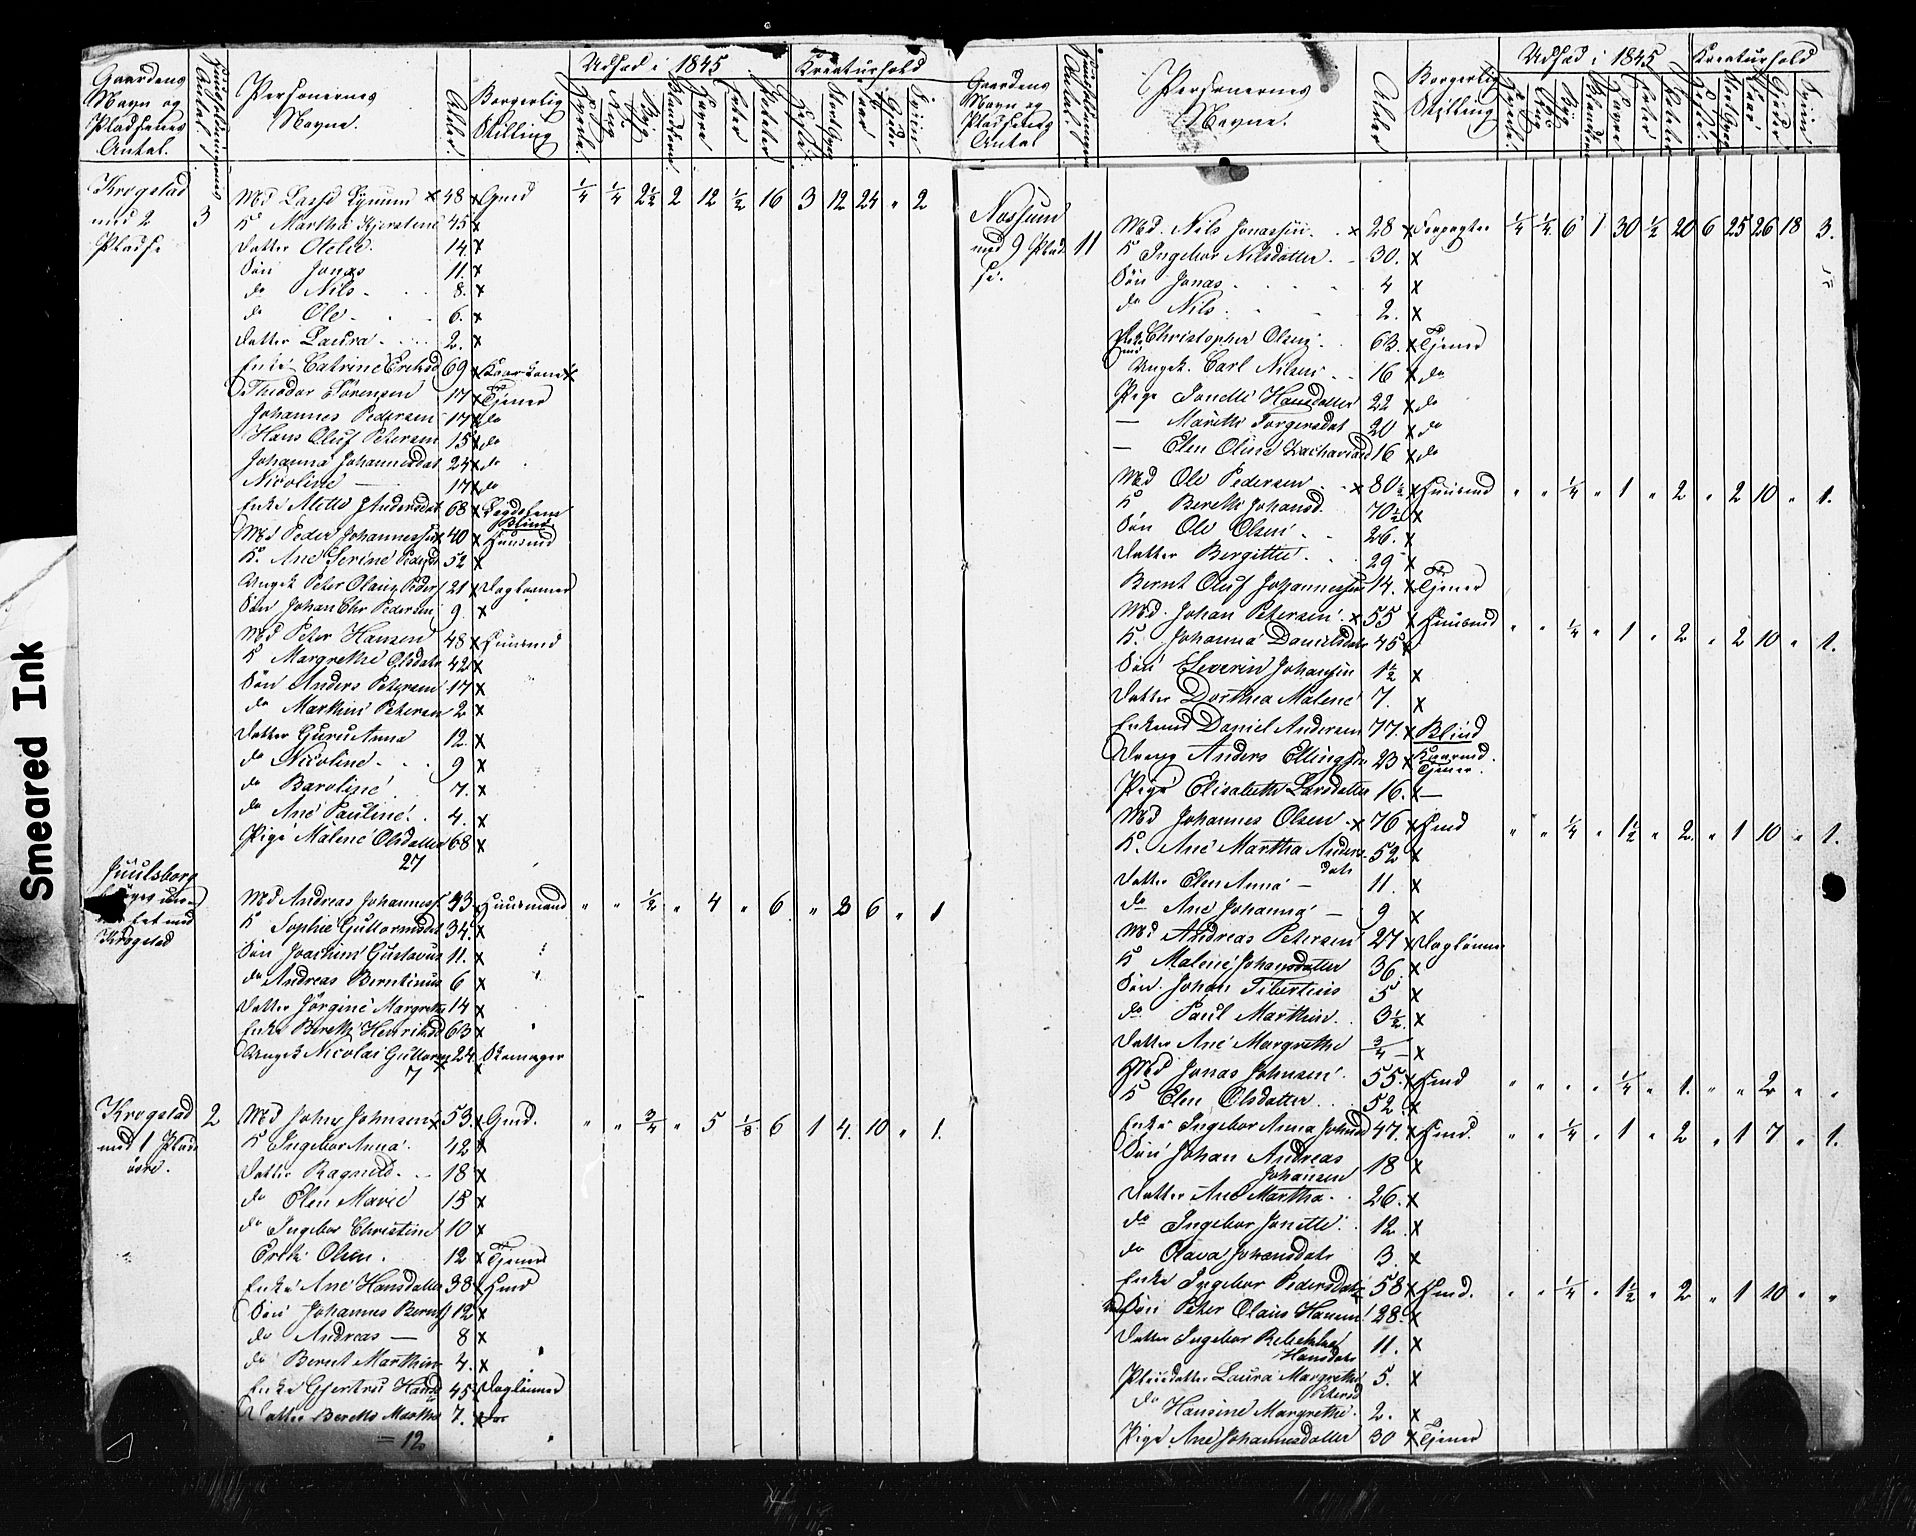 Smeared Ink
Gaardens Navn og Pladsenes Antal. Huusholdningernes Antal Personernes Navne. Alder. Borgerlig Stilling Udsæd i 1845 Hvede. Rug Byg Blandkorn Havre Erter Poteter Kreaturhold Heste. Stort Qvæg Faar Gjeder Sviin
Krogstad med 2 Pladse 3 Md Lasse 48 x Gmd 1/4 1/4 2 1/2 2 12 1/2 16 3 12 24 " 2
K Martha Kjerstine 45 x
Datter Otelie 14 x
Søn Jonas 11. x
do Nils 8. x
do Ole 6. x
Datter Laura 2. x
Enke Catrine Ericksd 69 x Kaarkone x
Theodor Sørensen 17 x Tjener
Johannes Pedersen 17 x do
Hans Oluf Petersen 15 x do
Johanna Johannesdat 24 x do
Nicoline — 17 x do
Enke Mette Andersdat 68 x Blind
Md Peder Johannessen x 40 x Huusmd
K. Ane Serine Peders 52 x
Ungk Peter Olaus Peders 21 x Dagloenner
Søn Johan Chr Pedersen 9. x
Md Peter Hansen 48 x Huusmd
K Margrethe Olsdatr 42 x
Søn Anders Petersen 17 x
do Marthin Petersen 2 x
Datter Guru Anna 12. x
do Nicoline 9 x
do Baroline 7. x
do Ane Pauline 4. x
Pige Malene Olsdatter 68 x
27
Juulsborg Krogstad Md Andreas Johannes 43 x Huusmand " " 1/2 " 4 " 6 " 3 6 " 1
K Sophie Guttormsdat 34. x
Søn Joachim Gustavus 11. x
do Andreas Berntinus 6 x
Datter Jørgine Margrethe 14 x
Enke Berethe Henriksd 63 x
Ungk Nicolai Guttorms 24. x Skomager
7
Krogstad med 1 Plads øvre. 2 Md John Johnsen x 53. x Gmd. " " 3/4 " 5 1/8 6 1 4. 10 " 1.
K Ingebor Anna 42 x
Datter Ragnild 18 x
do Elen Marie 15 x
do Ingebor Christine 10 x
Erik Olsen 12 x Tjener
Enke Ane Hansdatter 38 x Hmd
Søn Johannes Bernts 12 x
do Andreas — 8 x
do Bernt Marthin 4. x
Enke Gjertru Hansd 45 x Daglønner
Datter Berethe Martha 7. x do
= 12
Gaardens Navn og Pladsenes Antal Huusholdningernes Antal Personernes Navne. Alder Borgerlig Stilling Udsæd i 1845 Hvede. Rug Byg Blandkorn Havre Erter Poteter Kreaturhold Heste Stort Qvæg Faar Gjeder Sviin
med 9 Pladse. 11 Md. Nils Jonassen x 28 x Forpagter 1/4 1/4 6 1 30 1/2 20 6 25 26 18 3.
K Ingebor Nilsdatter 30. x
Søn Jonas 4 x
do Nils 2. x
Christopher Olsen 63. x Tjener
Ungk. Carl Nilsen 16 x do
Pige Jonette Hansdatter 22 x do
— Marithe Torgersdat 20 x do
— Elen Oline Zachariasd 16 x do
Md Ole Pedersen x 80 1/2 x Huusmd " " 1/4 " 1 " 2 " 2 10 " 1.
K Berethe Johansd 70 1/2 x
Søn Ole Olsen 26. x
Datter Bergitte 29 x
Bernt Oluf Johannessen 14. x Tjener
Md. Johan Petersen x 55 x Huusmd " " 1/4 " 1 " 2 " 2 10 " 1.
K. Johanna Danielsdatr 45 x
Søn Severin Johansen 1 1/2 x
Datter Dorthea Malene 7. x
Enkemd Daniel Andersen 77. x Blind Kaarmd.
Dreng Anders Ellingsen 23 x Tjener.
Pige Elisabeth Larsdatter 16. x —
Md Johannes Olsen x 76 x Hmd " " 1/4 " 1 1/2 " 2. " 1 10 " 1.
K. Ane Martha Andersdatr 52 x
Datter Elen Anna — 11. x
do Ane Johanna — 9 x
Md Andreas Petersen 27 x Daglønner
K Malene Johansdatter 36. x
Søn Johan Tibertius 5 x
do Paul Marthin 3 1/2. x
Datter Ane Margrethe 3/4 x
Md Jonas Johnsen 55. x Hmd " " " " 1/4 " 1. " " 2 " "
K Elen Olsdatter 52. x
Enke Ingebor Anna Johnsd 47. x Hmd. " " 1/4 " 1 " 2 " 1 7 " 1.
Søn Johan Andreas Johansen 18 x
Datter Ane Martha 26. x
do Ingebor Jonette 12. x
do Olava Johansdatr 3. x
Enke Ingebor Pedersdatr 58 x Hmd. " " 1/4 " 1 1/2 " 2 " 1 10 " "
Søn Peter Olaus Hansen 28. x
Datter Ingebor Rebekka Hansdatr 11. x
Pleiedatter Laura Margrethe Petersd 5. x
do Hansine Margrethe 2. x
Pige Ane Johannesdatter 30 x Tjener